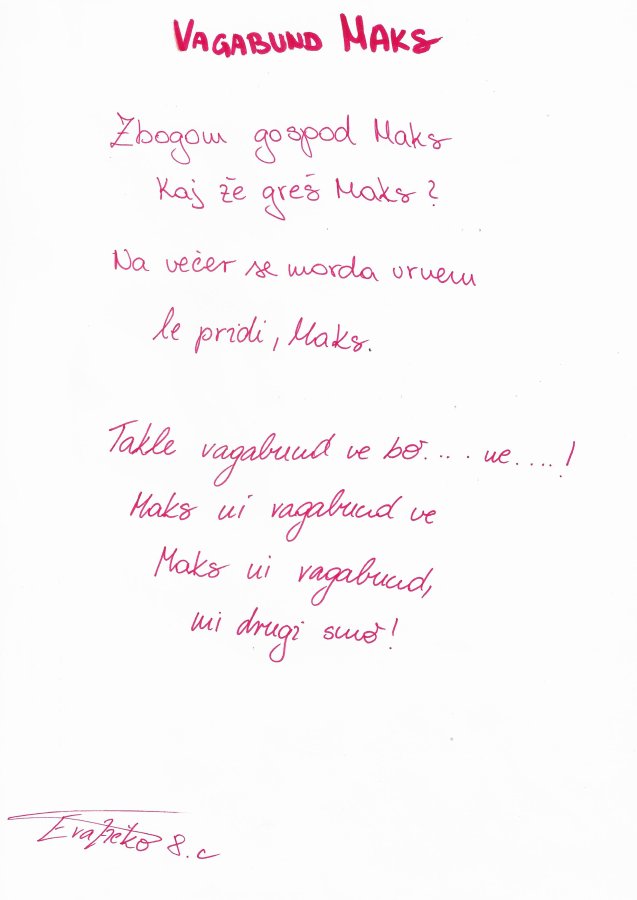 VAGABUND MAKS
Zbogom gospod Maks
Kaj že greš Maks?
Na večer se morda vrnem
le pridi, Maks.
Takle vagabund ve bo.... ne....!
Maks ni vagabund ve
Maks ni vagabund,
mi drugi smo!
Eva 8.c